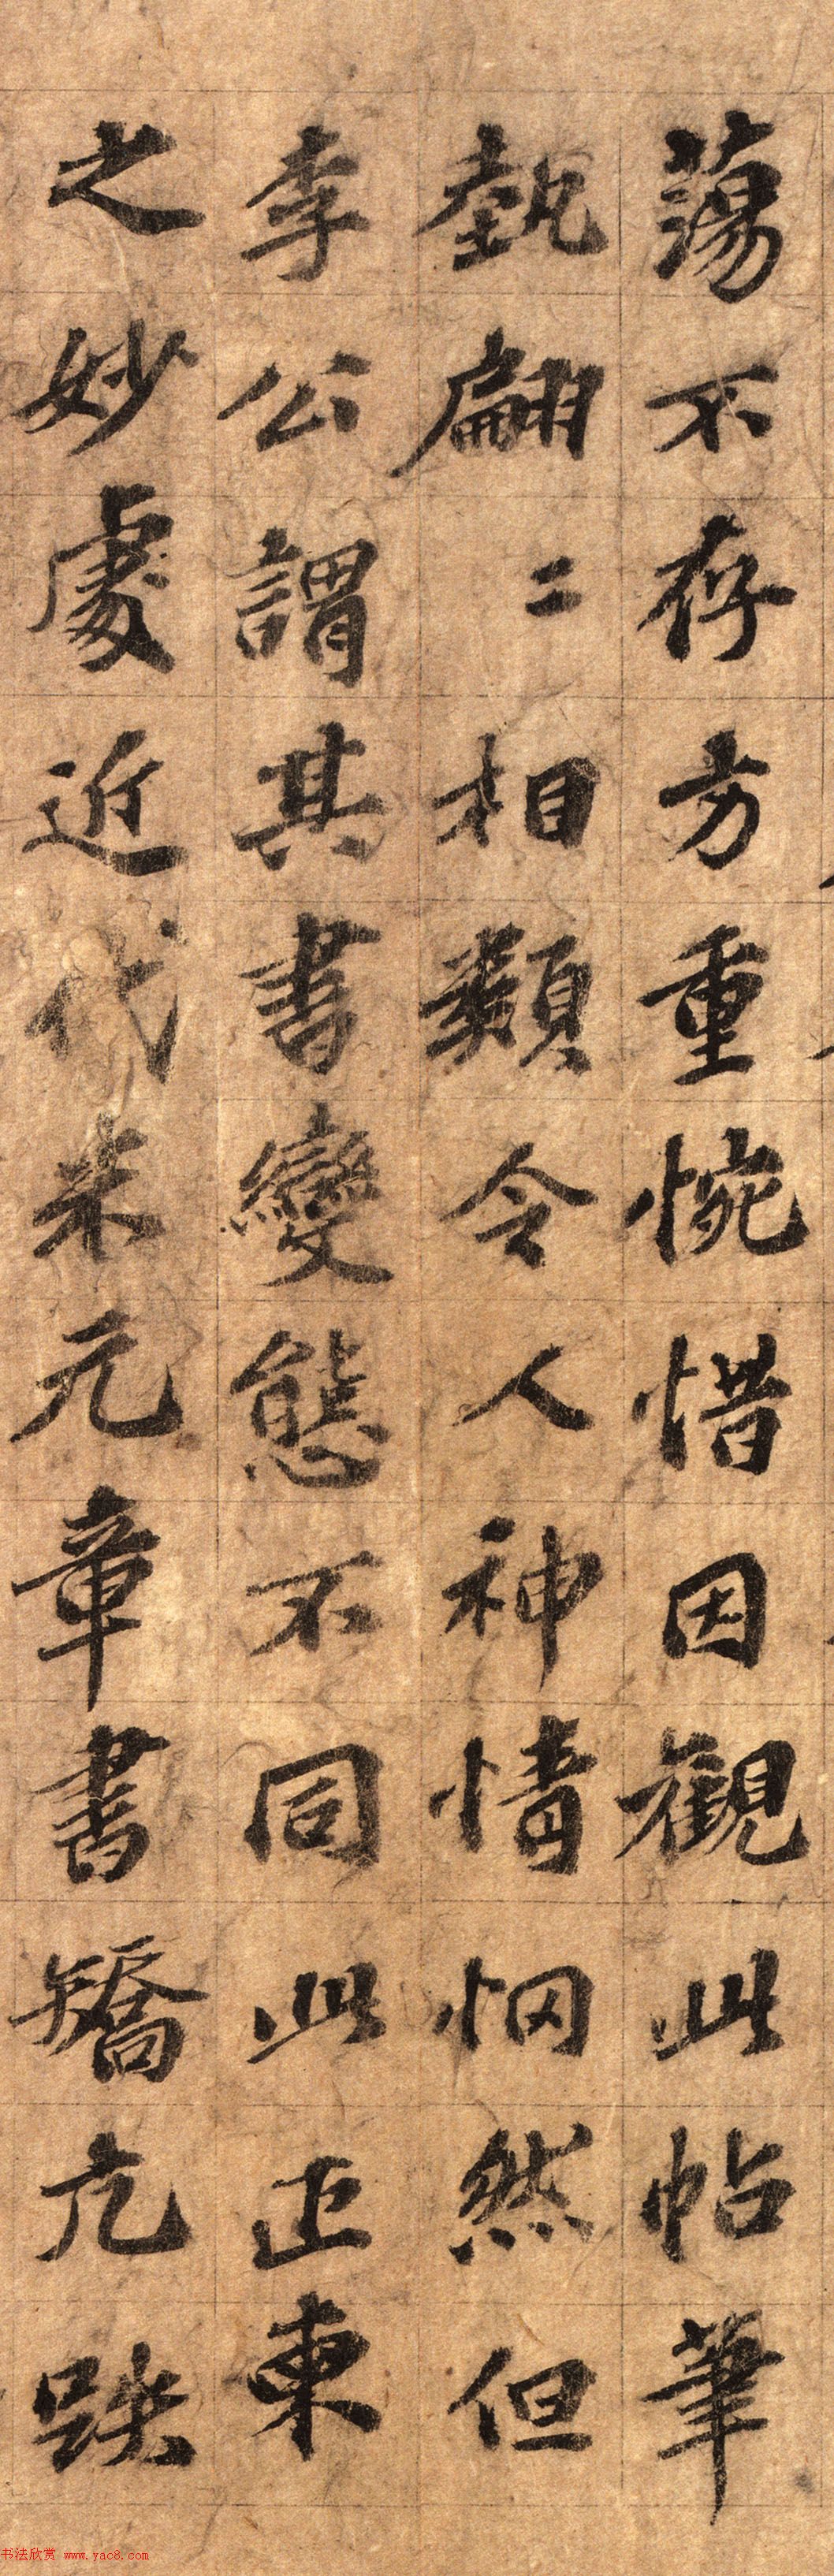 蕩不存方重惋惜因觀此帖筆
埶翩二相類令人神情惘然但
李公謂其書變態不同此正東
之妙處近代米元章書矯亢跌
书法欣赏 www.yac8.com